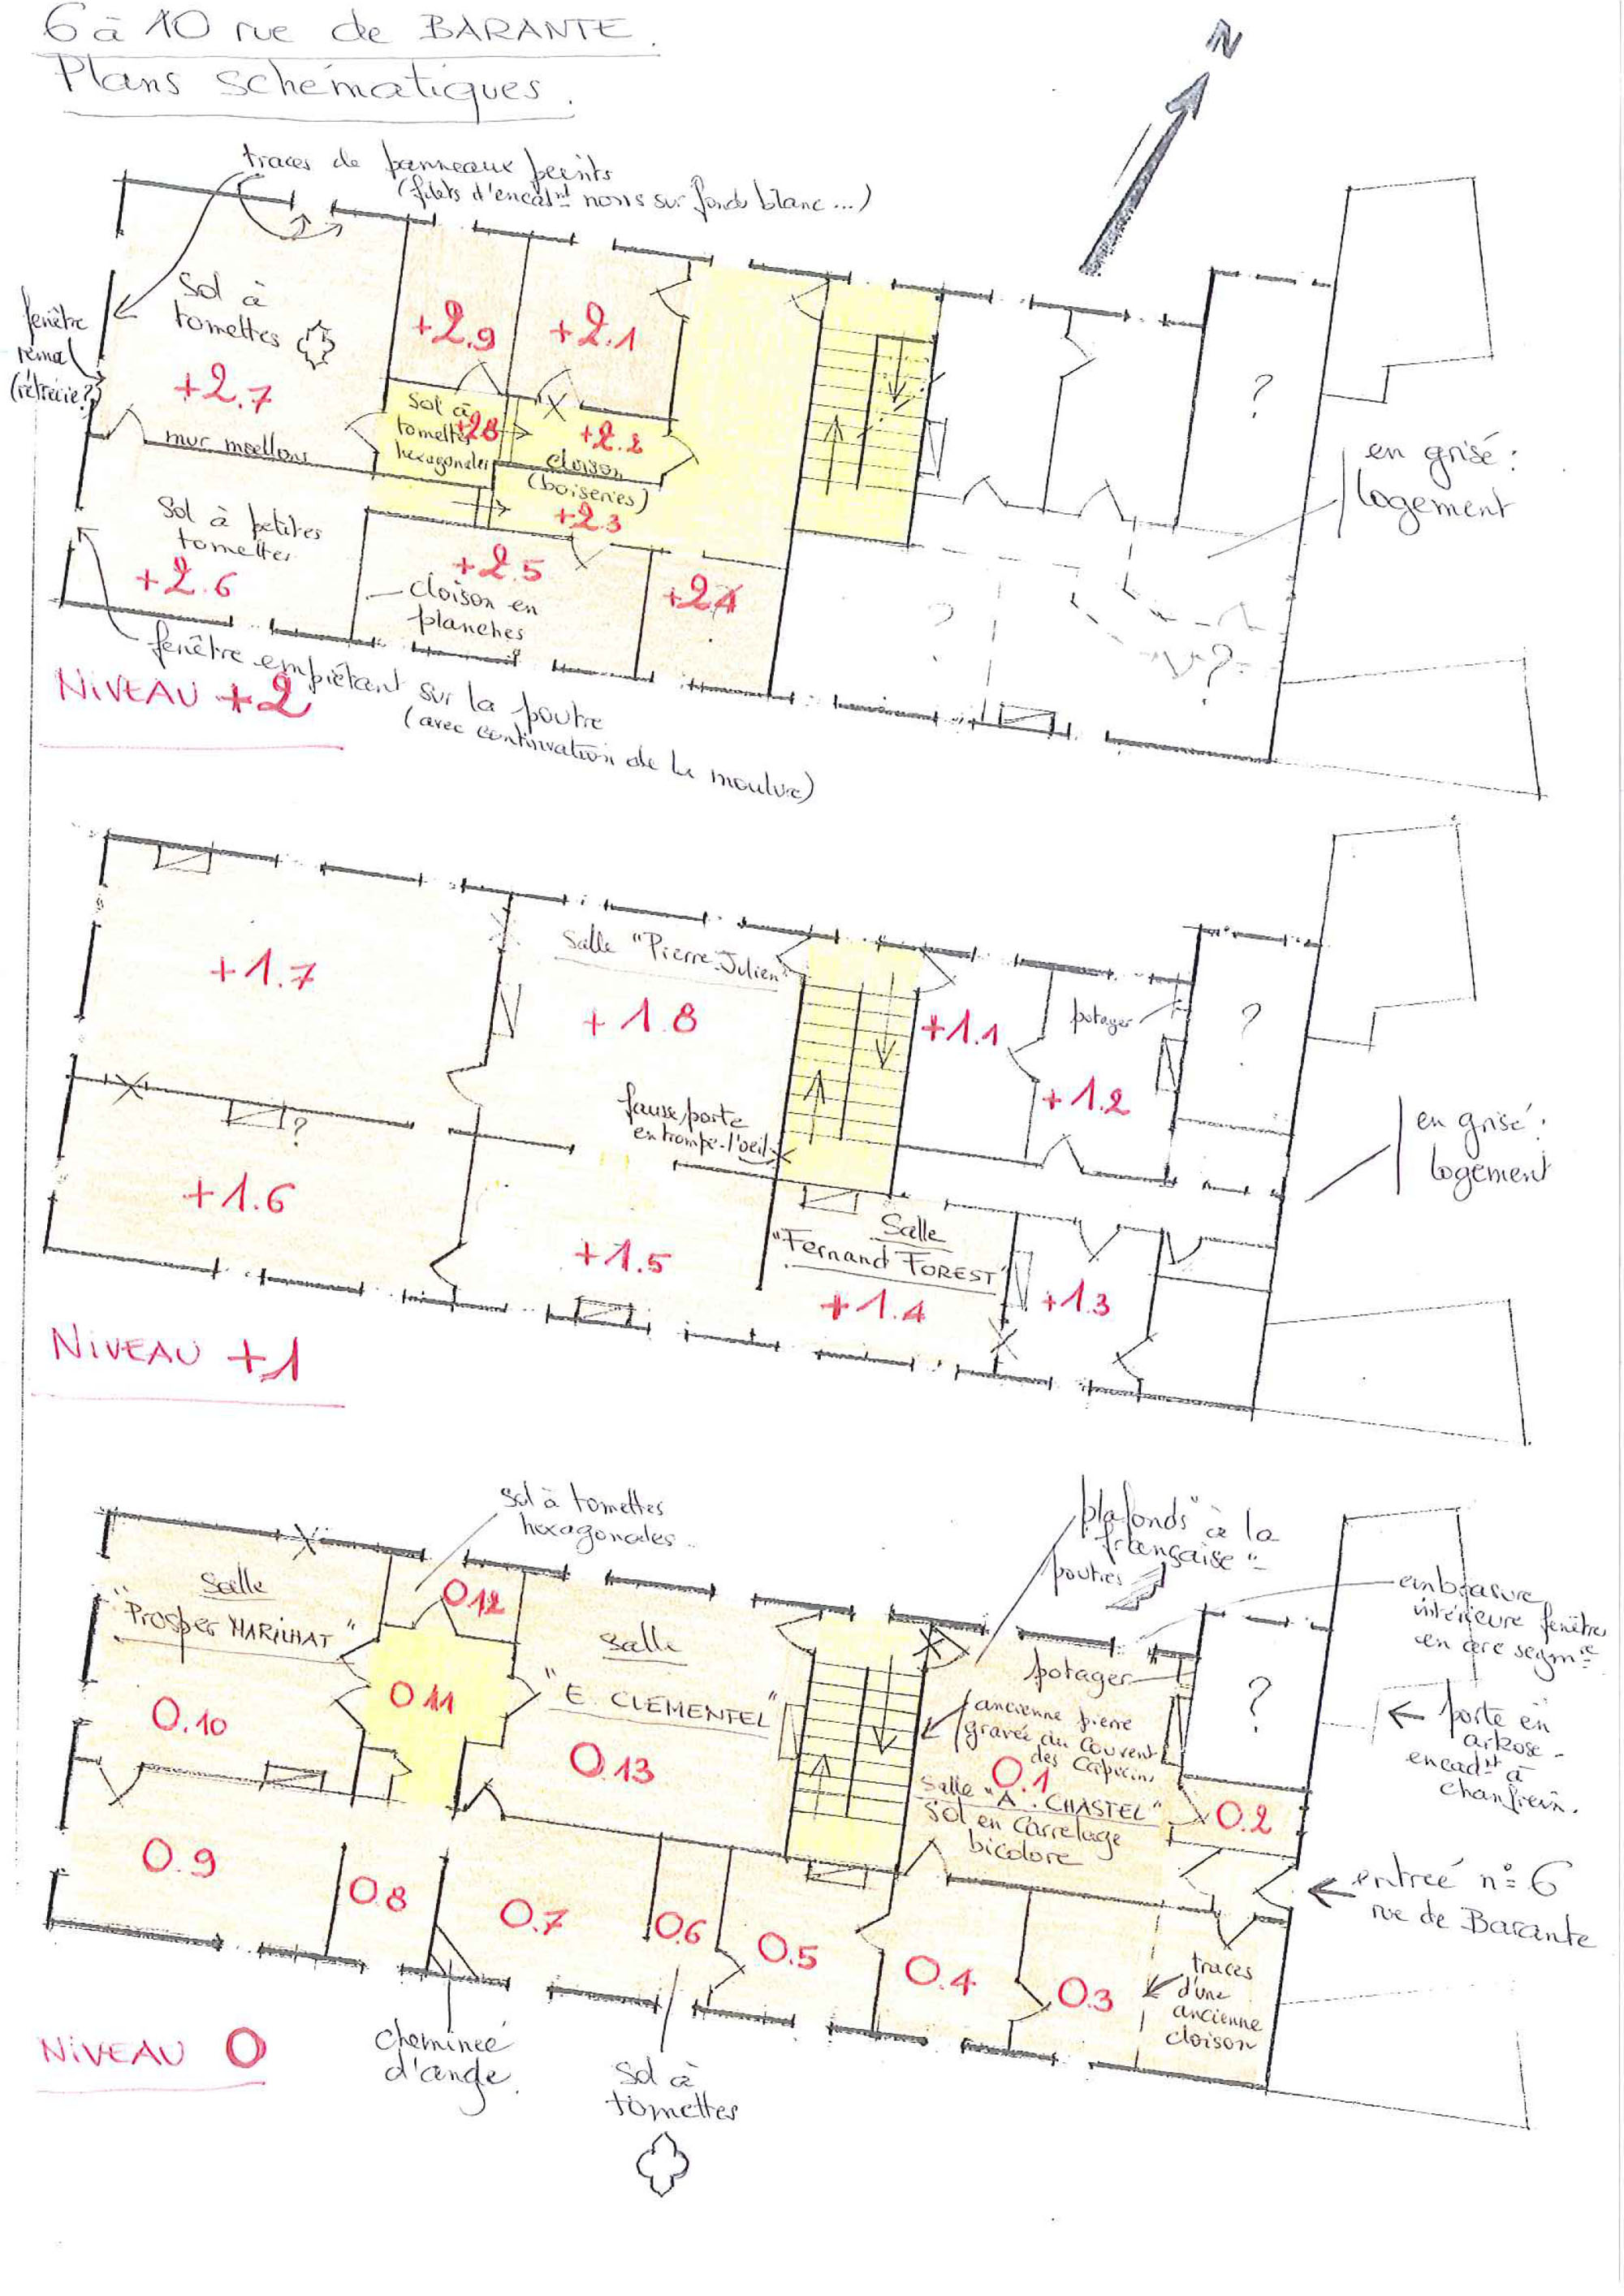 6 à 10 rue de BARANTE.
Plans schématiques.
N
traces de panneaux peints
(filets d'encadnt noirs sur fonds blanc...)
fenêtre
(rétrécie?)
Sol à
tomettes
+2.7
mur moellons
+2.9
+2.1
Sol à
tomettes
hexagonales
+2.8
+2.2
cloison
(boiseries)
+2.3
Sol à petites
tomettes
+2.6
+2.5
cloison en
planches
+2.4
?
?
?
en grisé:
logement
fenêtre empiétant sur la poutre
(avec continuation de la moulure)
NIVEAU +2
+1.7
Salle "Pierre-Julien"
+1.8
+1.1
potager
+1.2
?
fausse porte
en trompe-l'oeil
?
+1.6
+1.5
Salle
"Fernand FOREST"
+1.4
+1.3
en grisé:
logement
NIVEAU +1
sol à tomettes
hexagonales
plafonds "à la
française"
poutres
embrasure
intérieure fenêtres
en arc segmre
Salle
"Prosper MARILHAT"
0.12
0.11
0.10
Salle
"E. CLEMENTEL"
0.13
potager
ancienne pierre
gravée du Couvent
des Capucins
0.1
Salle "A. CHASTEL"
Sol en carrelage
bicolore
?
0.2
porte en
arkose
encadnt à
chanfrein.
entrée n° 6
rue de Barante
0.9
0.8
0.7
0.6
0.5
0.4
0.3
traces
d'une
ancienne
cloison
NIVEAU 0
cheminée
d'angle.
Sol à
tomettes